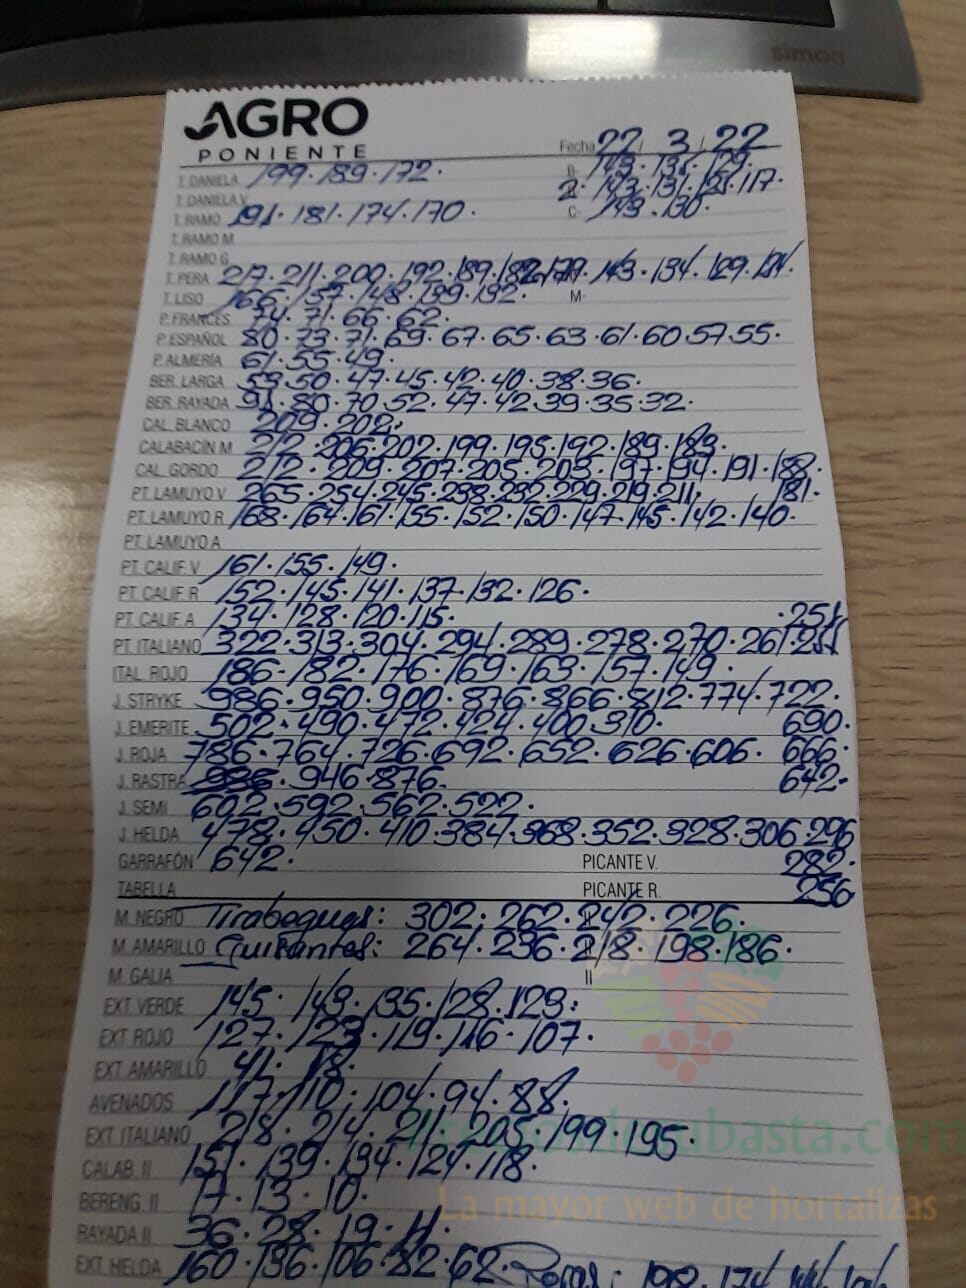 simon
AGRO
PONIENTE
Fecha 22 / 3 / 22
B- 143. 135. 129.
T. DANELA 199. 189. 172.
T. DANELA V
C- 143. 130.
T. RAMO 191. 181. 174. 170.
T. RAMO M
T. RAMO G
T. PERA 217. 211. 200. 192. 189. 143. 134. 129. 124.
T. LISO 166. 157. 148. 139. 132. M-
P. FRANCES 74. 71. 66. 62.
P. ESPAÑOL 80. 73. 71. 69. 67. 65. 63. 61. 60 57. 55.
P. ALMERÍA 61. 55. 49.
BER. LARGA 53. 50. 47. 45. 42. 40. 38. 36.
BER. RAYADA 91. 80. 70. 52. 47. 42. 39. 35. 32.
CAL. BLANCO 209. 202.
CALABACÍN M 212. 206. 202. 199. 195. 192. 189. 183.
CAL. GORDO 212. 209. 207. 205. 203. 197. 194. 191. 188.
181.
PT. LAMUYO V 265. 254. 245. 238. 232. 229. 219. 211.
PT. LAMUYO R 168. 164. 161. 155. 152. 150. 147. 145. 142. 140.
PT. LAMUYO A
PT. CALIF. V 161. 155. 149.
PT. CALIF. R 152. 145. 141. 137. 132. 126.
PT. CALIF. A 134. 128. 120. 115.
PT. ITALIANO 322. 313. 304. 294. 289. 278. 270. 261.
ITAL. ROJO 186. 182. 176. 169. 163. 157. 149.
J. STRYKE 986. 950. 900. 876. 866. 812. 774. 722.
690.
J. EMERITE 502. 490. 472. 424. 400. 310.
J. ROJA 786. 764. 726. 692. 652. 626. 606. 666.
J. RASTRA 986. 946. 876. 642.
J. SEMI 602. 592. 562. 522.
J. HELDA 478. 450. 410. 384. 368. 352. 328. 306. 296
282.
256
GARRAFÓN 642. PICANTE V.
TABELLA PICANTE R.
M. NEGRO Tirabeques: 302. 262. 242. 226. II
M. AMARILLO Guisantes: 264. 236. 218. 198. 186. II
M. GALIA II
EXT VERDE 145. 143. 135. 128. 123.
EXT ROJO 127. 123. 119. 116. 107.
EXT AMARILLO 41. 18.
AVENADOS 117. 110. 104. 94. 88.
EXT. ITALIANO 218. 214. 211. 205. 199. 195.
CALAB. II 151. 139. 134. 124. 118.
BERENG. II 17. 13. 10.
RAYADA II 36. 28. 19. 11.
EXT. HELDA 160. 136. 106. 82. 62.
La mayor web de hortalizas